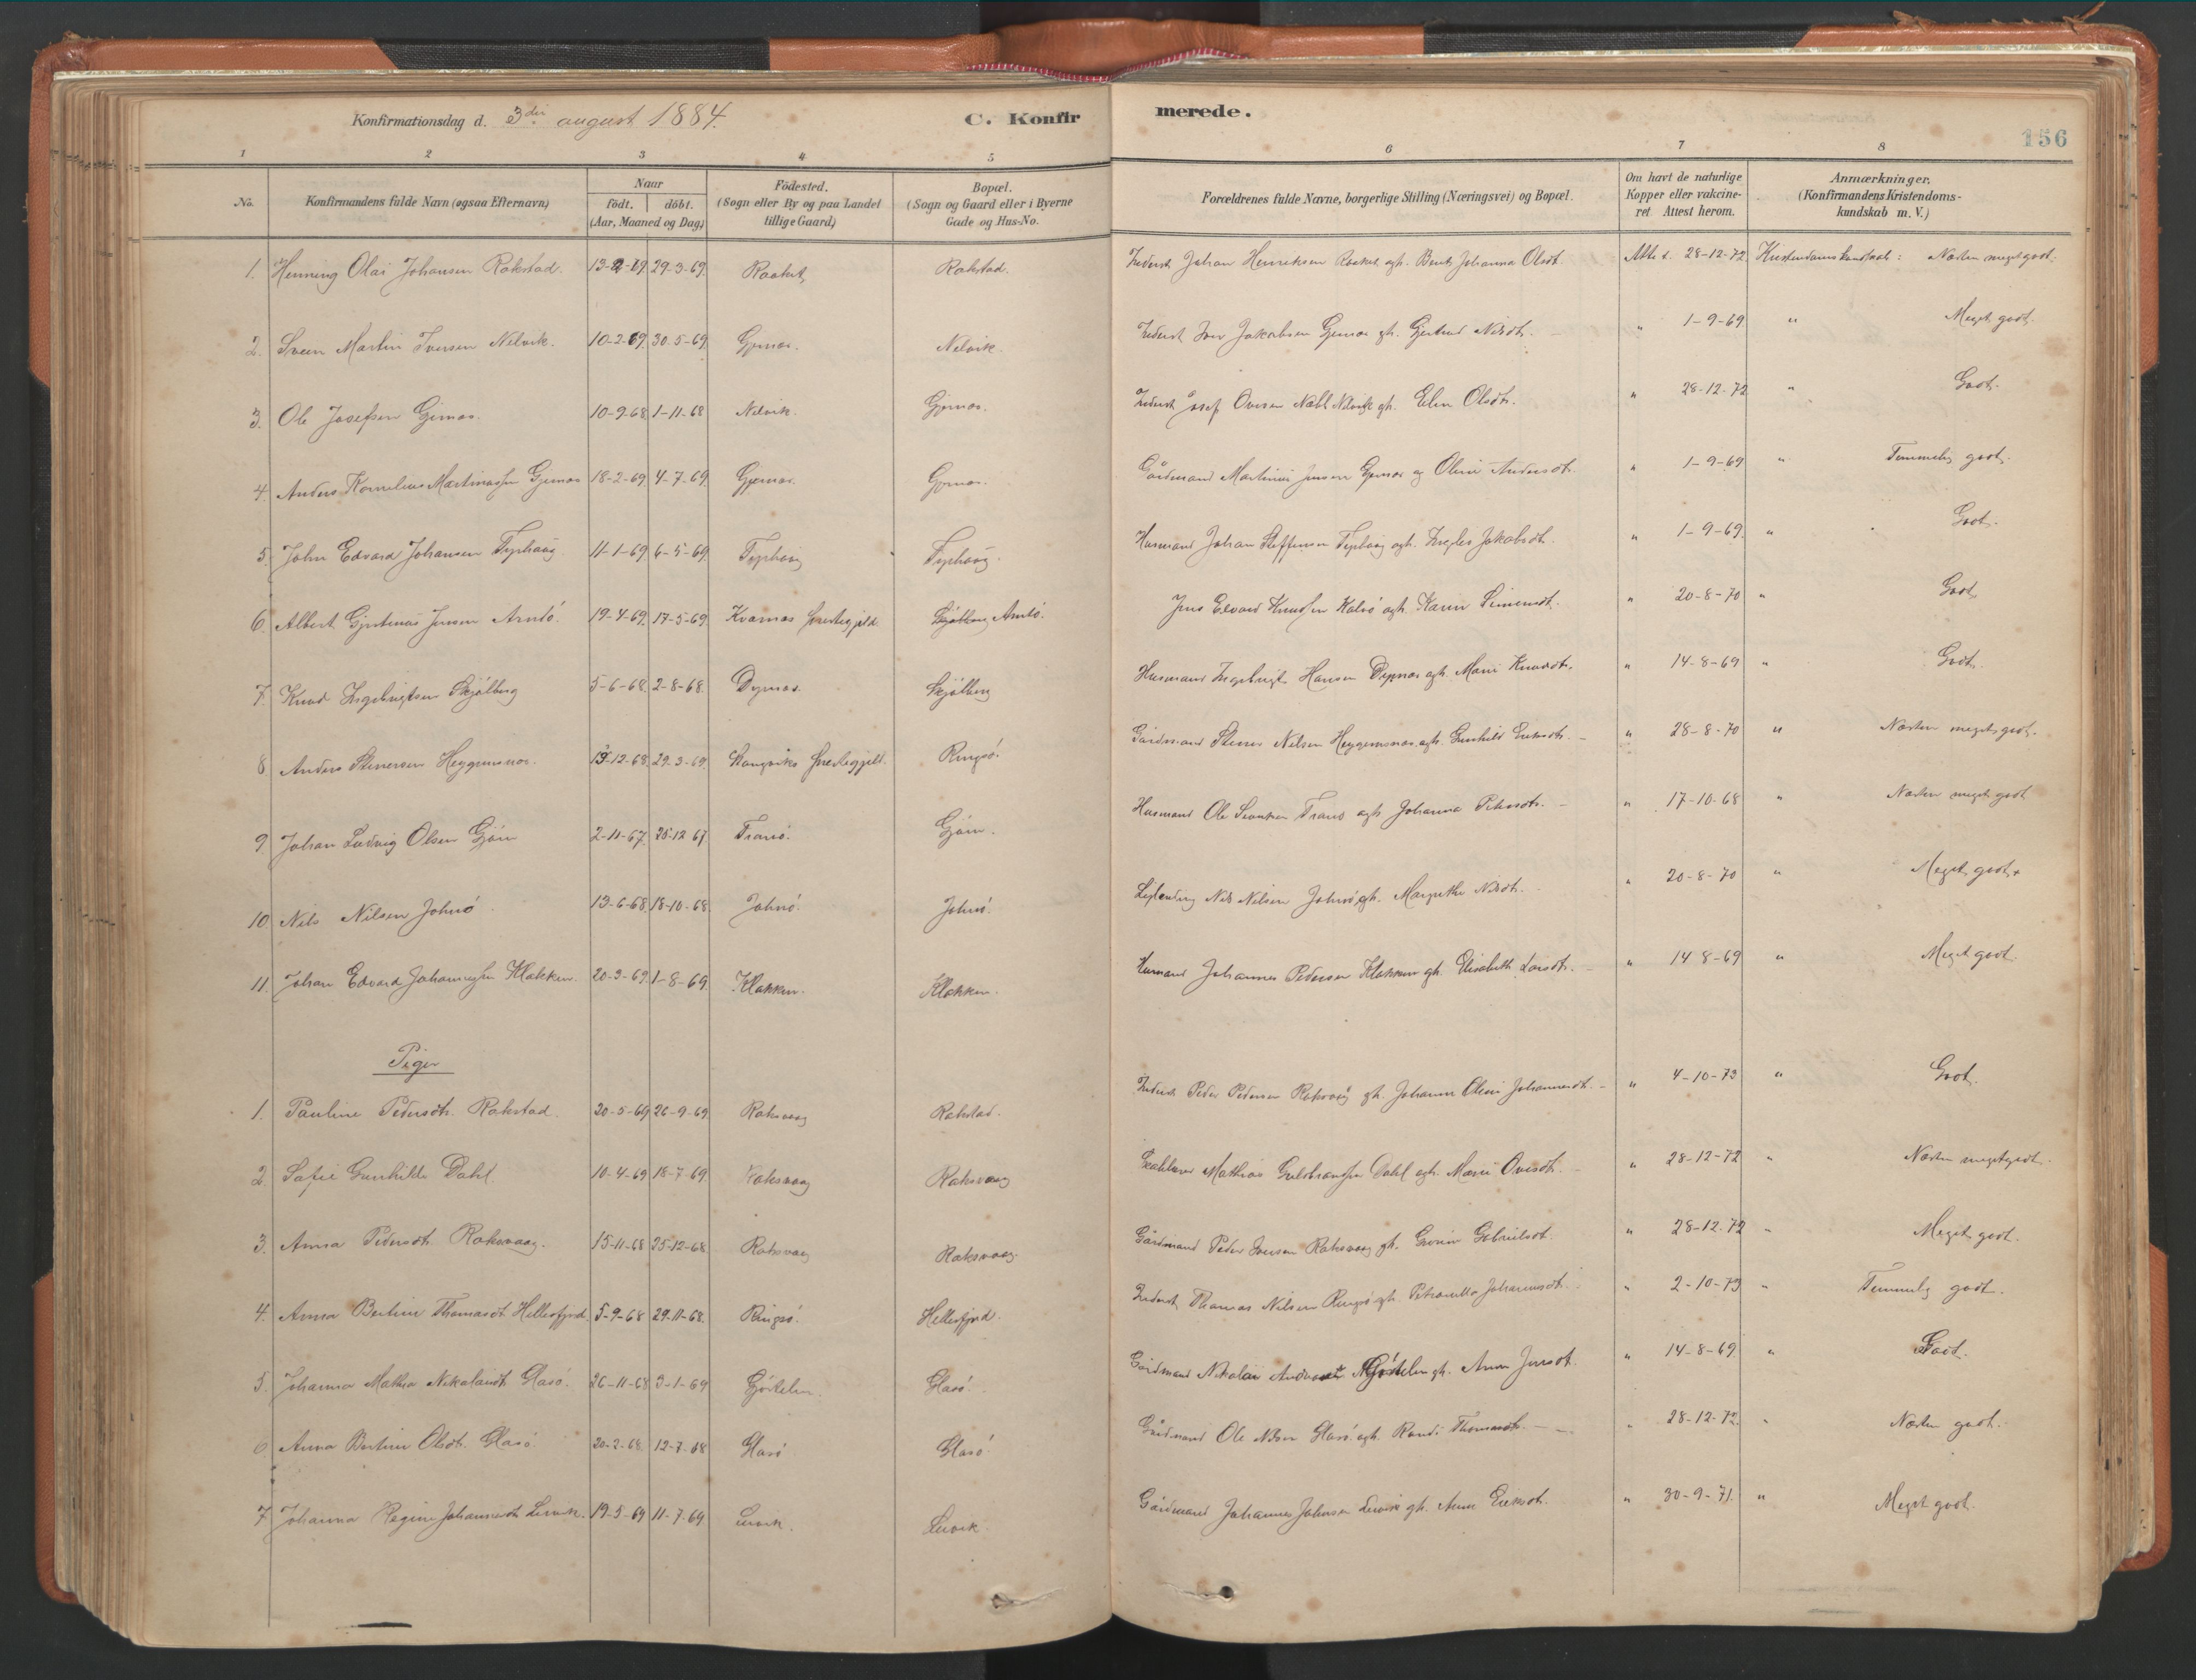 Konfirmationsdag d. 3die august 1884.
C. Konfirmerede.
156
1 2 3 4 5 6 7 8
No.
Konfirmandens fulde Navn (ogsaa Efternavn)
Naar
födt. döbt.
(Aar, Maaned og Dag)
Födested.
(Sogn eller By og paa Landet
tillige Gaard)
Bopæl.
(Sogn og Gaard eller i Byerne
Gade og Hus-No.
Forældrenes fulde Navne, borgerlige Stilling (Næringsvei) og Bopæl.
Om havt de naturlige
Kopper eller vakcine-
ret. Attest herom.
Anmærkninger.
(Konfirmandens Kristendoms-
kundskab m. V.)
1. Henning Olai Johansen Rokstad. 13-2-69 29-3-69 Rokstad. Johan Henriksen agh. Berit Johanna Olsdt. Att. d. 28-12-72 Kristendomskundskab: Næsten meget godt.
2. Sven Martin Iversen Nelvik. 10-2-69 30-5-69 Gjernes. Nelvik. Inderst Iver Jakobsen Gjernes gh. Gjertrud Nilsdt. " 1-9-69 " Meget godt
3. Ole Josefsen Gjernes. 10-9-68 1-11-68 Nelvik. Gjernes. Inderst Josef Ovesen Nelvik gh. Elen Olsdt. " 28-12-72 " Godt.
4. Anders Kornelius Martinussen Gjernes 18-2-69 4-7-69 Gjernes. Gjernes. Gårdmand Martinus Jensen Gjernes og Oline Andersdt. " 1-9-69 " Temmelig godt.
5. John Edvard Johansen 11-1-69 6-5-69 Husmand Johan Steffensen agh. Jakobsdt. " 1-9-69 " Godt.
6. Albert Gjertinus Jensen Arntö. 19-4-69 17-5-69 Kvernes Prestegjeld Arntö. Jens Edvard Knudsen agh. Karen Simensdt. " 20-8-70 " Godt
7. Knud Ingebrigtsen Skjölberg 5-6-68 2-8-68 Dyrnes. Skjölberg Husmand Ingebrigt Hansen Dyrnes agh. Marie Knudsdt. " 14-8-69 " Godt.
8. Anders Stenersen Heggemsnes. 29-3-69 Stangviks Prestegjeld. Ringsö. Gårdmand Stener Nilsen Heggemsnes agh. Gunhild Eriksdt. " 28-8-70 " Næsten meget godt.
9. Johan Ludvig Olsen 2-11-67 Husmand Ole agh. Johanna Petersdt. " 17-10-68 " Næsten meget godt
10. Nils Nilsen Johnsö. 13-6-68 18-10-68 Johnsö. Johnsö. Nils Nilsen Johnsö gh. Margrethe Nilsdt. " 20-8-70 " Meget godt
11. Johan Edvard Johannessen Klakken. 20-3-69 1-8-69 Klakken. Klakken. Husmand Johannes Pedersen Klakken gh. Elisabeth Larsdt. " 14-8-69 " Meget godt.
Piger
1. Pauline Pedersdt. Rokstad. 20-5-69 26-9-69 Roksvaag Rokstad. Inderst Peder Pedersen Roksvåg gh. Johanna Oline Johannesdt. " 4-10-73 " Godt.
2. Sofie Gunhilde Dahl. 10-4-69 18-7-69 Roksvaag Roksvaag Mathias Dahl agh. Marie Ovesdt. " 28-12-72 " Næsten meget godt.
3. Anna Pedersdt. Roksvaag. 15-11-68 25-12-68 Roksvaag Roksvaag. Gårdmand Peder Iversen Roksvaag gh. Gabrielsdt. " 28-12-72 " Meget godt.
4. Anna Berline Thomasdt. Hellesfjord. 5-9-68 29-11-68. Ringsö. Hellesfjord. Inderst Thomas Nilsen Ringsö gh. Petronelle Johannesdt. " 2-10-73 " Temmelig godt.
5. Johanna Mathea Nikolaisdt. Glasö. 26-11-68 3-1-69 Glasö. Gårdmand Nikolai gh. Anne Jensdt. " 14-8-69 " Godt.
6. Anna Berline Olsdt. Glasö 20-2-68. 12-7-68 Glasö Glasö. Gårdmand Ole Nilsen Glasö agh. Randi Thomasdt. " 28-12-72. " Næsten godt.
7. Johanna Regine Johannesdt. Lervik. 19-5-69 11-7-69 Lervik. Lervik. Gårdmand Johannes Johnsen Lervik gh. Anne Eriksdt. " 30-9-71. " Meget godt.